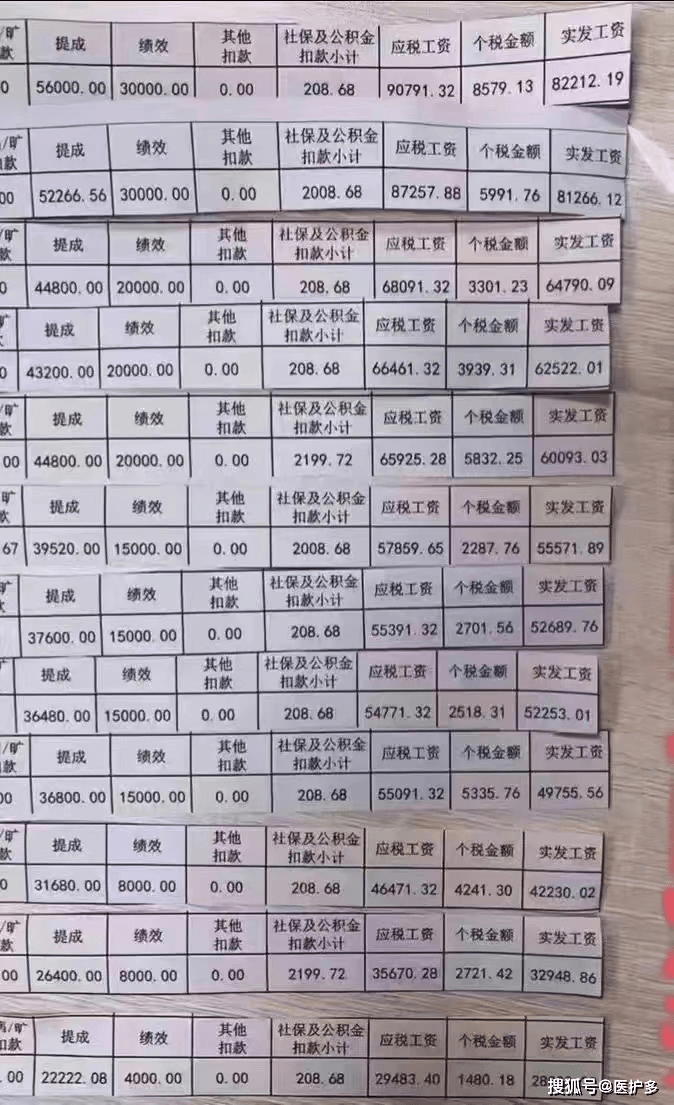 /旷 提成 绩效 其他 社保及公积金 应税工资 个税金额 实发工资
款 扣款 扣款小计
0 56000.00 30000.00 0.00 208.68 90791.32 8579.13 82212.19
/旷 提成 绩效 其他 社保及公积金 应税工资 个税金额 实发工资
款 扣款 扣款小计
00 52266.56 30000.00 0.00 2008.68 87257.88 5991.76 81266.12
/旷 提成 绩效 其他 社保及公积金 应税工资 个税金额 实发工资
款 扣款 扣款小计
0 44800.00 20000.00 0.00 208.68 68091.32 3301.23 64790.09
旷 提成 绩效 其他 社保及公积金 应税工资 个税金额 实发工资
扣款 扣款小计
0 43200.00 20000.00 0.00 208.68 66461.32 3939.31 62522.01
/旷 提成 绩效 其他 社保及公积金 应税工资 个税金额 实发工资
款 扣款 扣款小计
00 44800.00 20000.00 0.00 2199.72 65925.28 5832.25 60093.03
旷 提成 绩效 其他 社保及公积金 应税工资 个税金额 实发工资
款 扣款 扣款小计
67 39520.00 15000.00 0.00 2008.68 57859.65 2287.76 55571.89
旷 提成 绩效 其他 社保及公积金 应税工资 个税金额 实发工资
扣款 扣款小计
37600.00 15000.00 0.00 208.68 55391.32 2701.56 52689.76
提成 绩效 其他 社保及公积金 应税工资 个税金额 实发工资
扣款 扣款小计
36480.00 15000.00 0.00 208.68 54771.32 2518.31 52253.01
/旷 提成 绩效 其他 社保及公积金 应税工资 个税金额 实发工资
款 扣款 扣款小计
00 36800.00 15000.00 0.00 208.68 55091.32 5335.76 49755.56
/旷 提成 绩效 其他 社保及公积金 应税工资 个税金额 实发工资
款 扣款 扣款小计
0 31680.00 8000.00 0.00 208.68 46471.32 4241.30 42230.02
/旷 提成 绩效 其他 社保及公积金 应税工资 个税金额 实发工资
款 扣款 扣款小计
00 26400.00 8000.00 0.00 2199.72 35670.28 2721.42 32948.86
/旷 提成 绩效 其他 社保及公积金 应税工资 个税金额 实发工资
扣款 扣款 扣款小计
.00 22222.08 4000.00 0.00 208.68 29483.40 1480.18
搜狐号@医护多